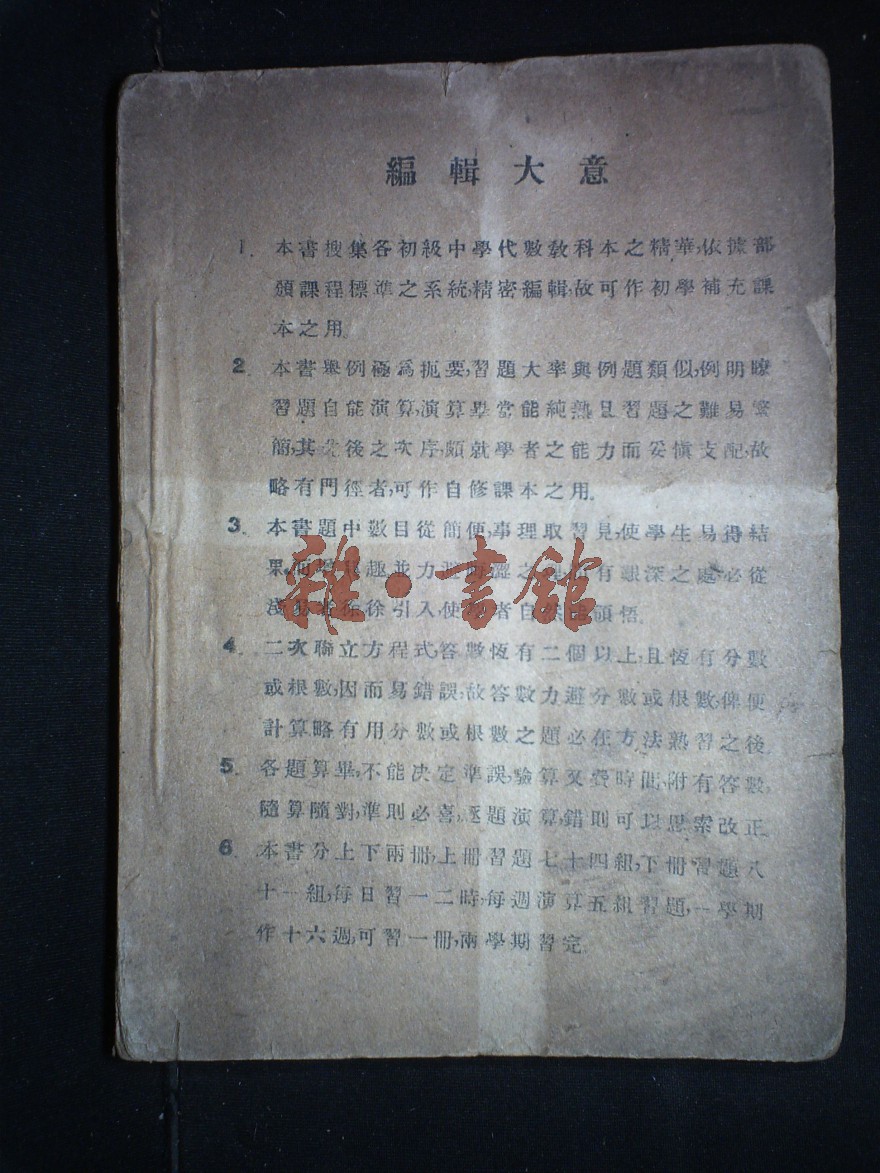 編輯大意
1. 本書搜集各初級中學代數教科本之精華,依據部
頒課程標準之系統,精密編輯,故可作初學補充課
本之用。
2. 本書舉例極爲扼要,習題大率與例題類似,例明瞭
習題自能演算,演算畢當能純熟且習題之難易繁
簡,其先後之次序,頗就學者之能力而妥愼支配,故
略有門徑者,可作自修課本之用。
3. 本書題中數目從簡便,事理取習見,使學生易得結
果,趣,並力避之有艱深之處必從
徐徐引入使者自領悟。
雜·書館
4. 二次聯立方程式,答數恆有二個以上,且恆有分數
或根數,因而易錯誤,故答數力避分數或根數,俾便
計算略有用分數或根數之題必在方法熟習之後。
5. 各題算畢,不能決定準誤,驗算又費時間,附有答數,
隨算隨對,準則必喜,逐題演算,錯則可以思索改正。
6. 本書分上下兩冊,上冊習題七十四組,下冊習題八
十一組,每日習一二時,每週演算五組習題,一學期
作十六週,可習一冊,兩學期習完。